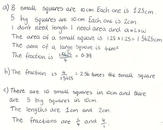 a) 8 small squares are 10cm Each one is 1.25cm
5 big squares are 10cm Each one is 2cm
I don't need length I need area and
The area of a small square is 1.25 × 1.25 = 1.5625cm
The area of a large square is 4cm²
The fraction is = 0.39
b) The fraction is = 2.56 times the small square
c) There are 10 small squares in 10cm and there
are 5 big squares in 10cm
The lengths are 1cm and 2cm
The fractions are and